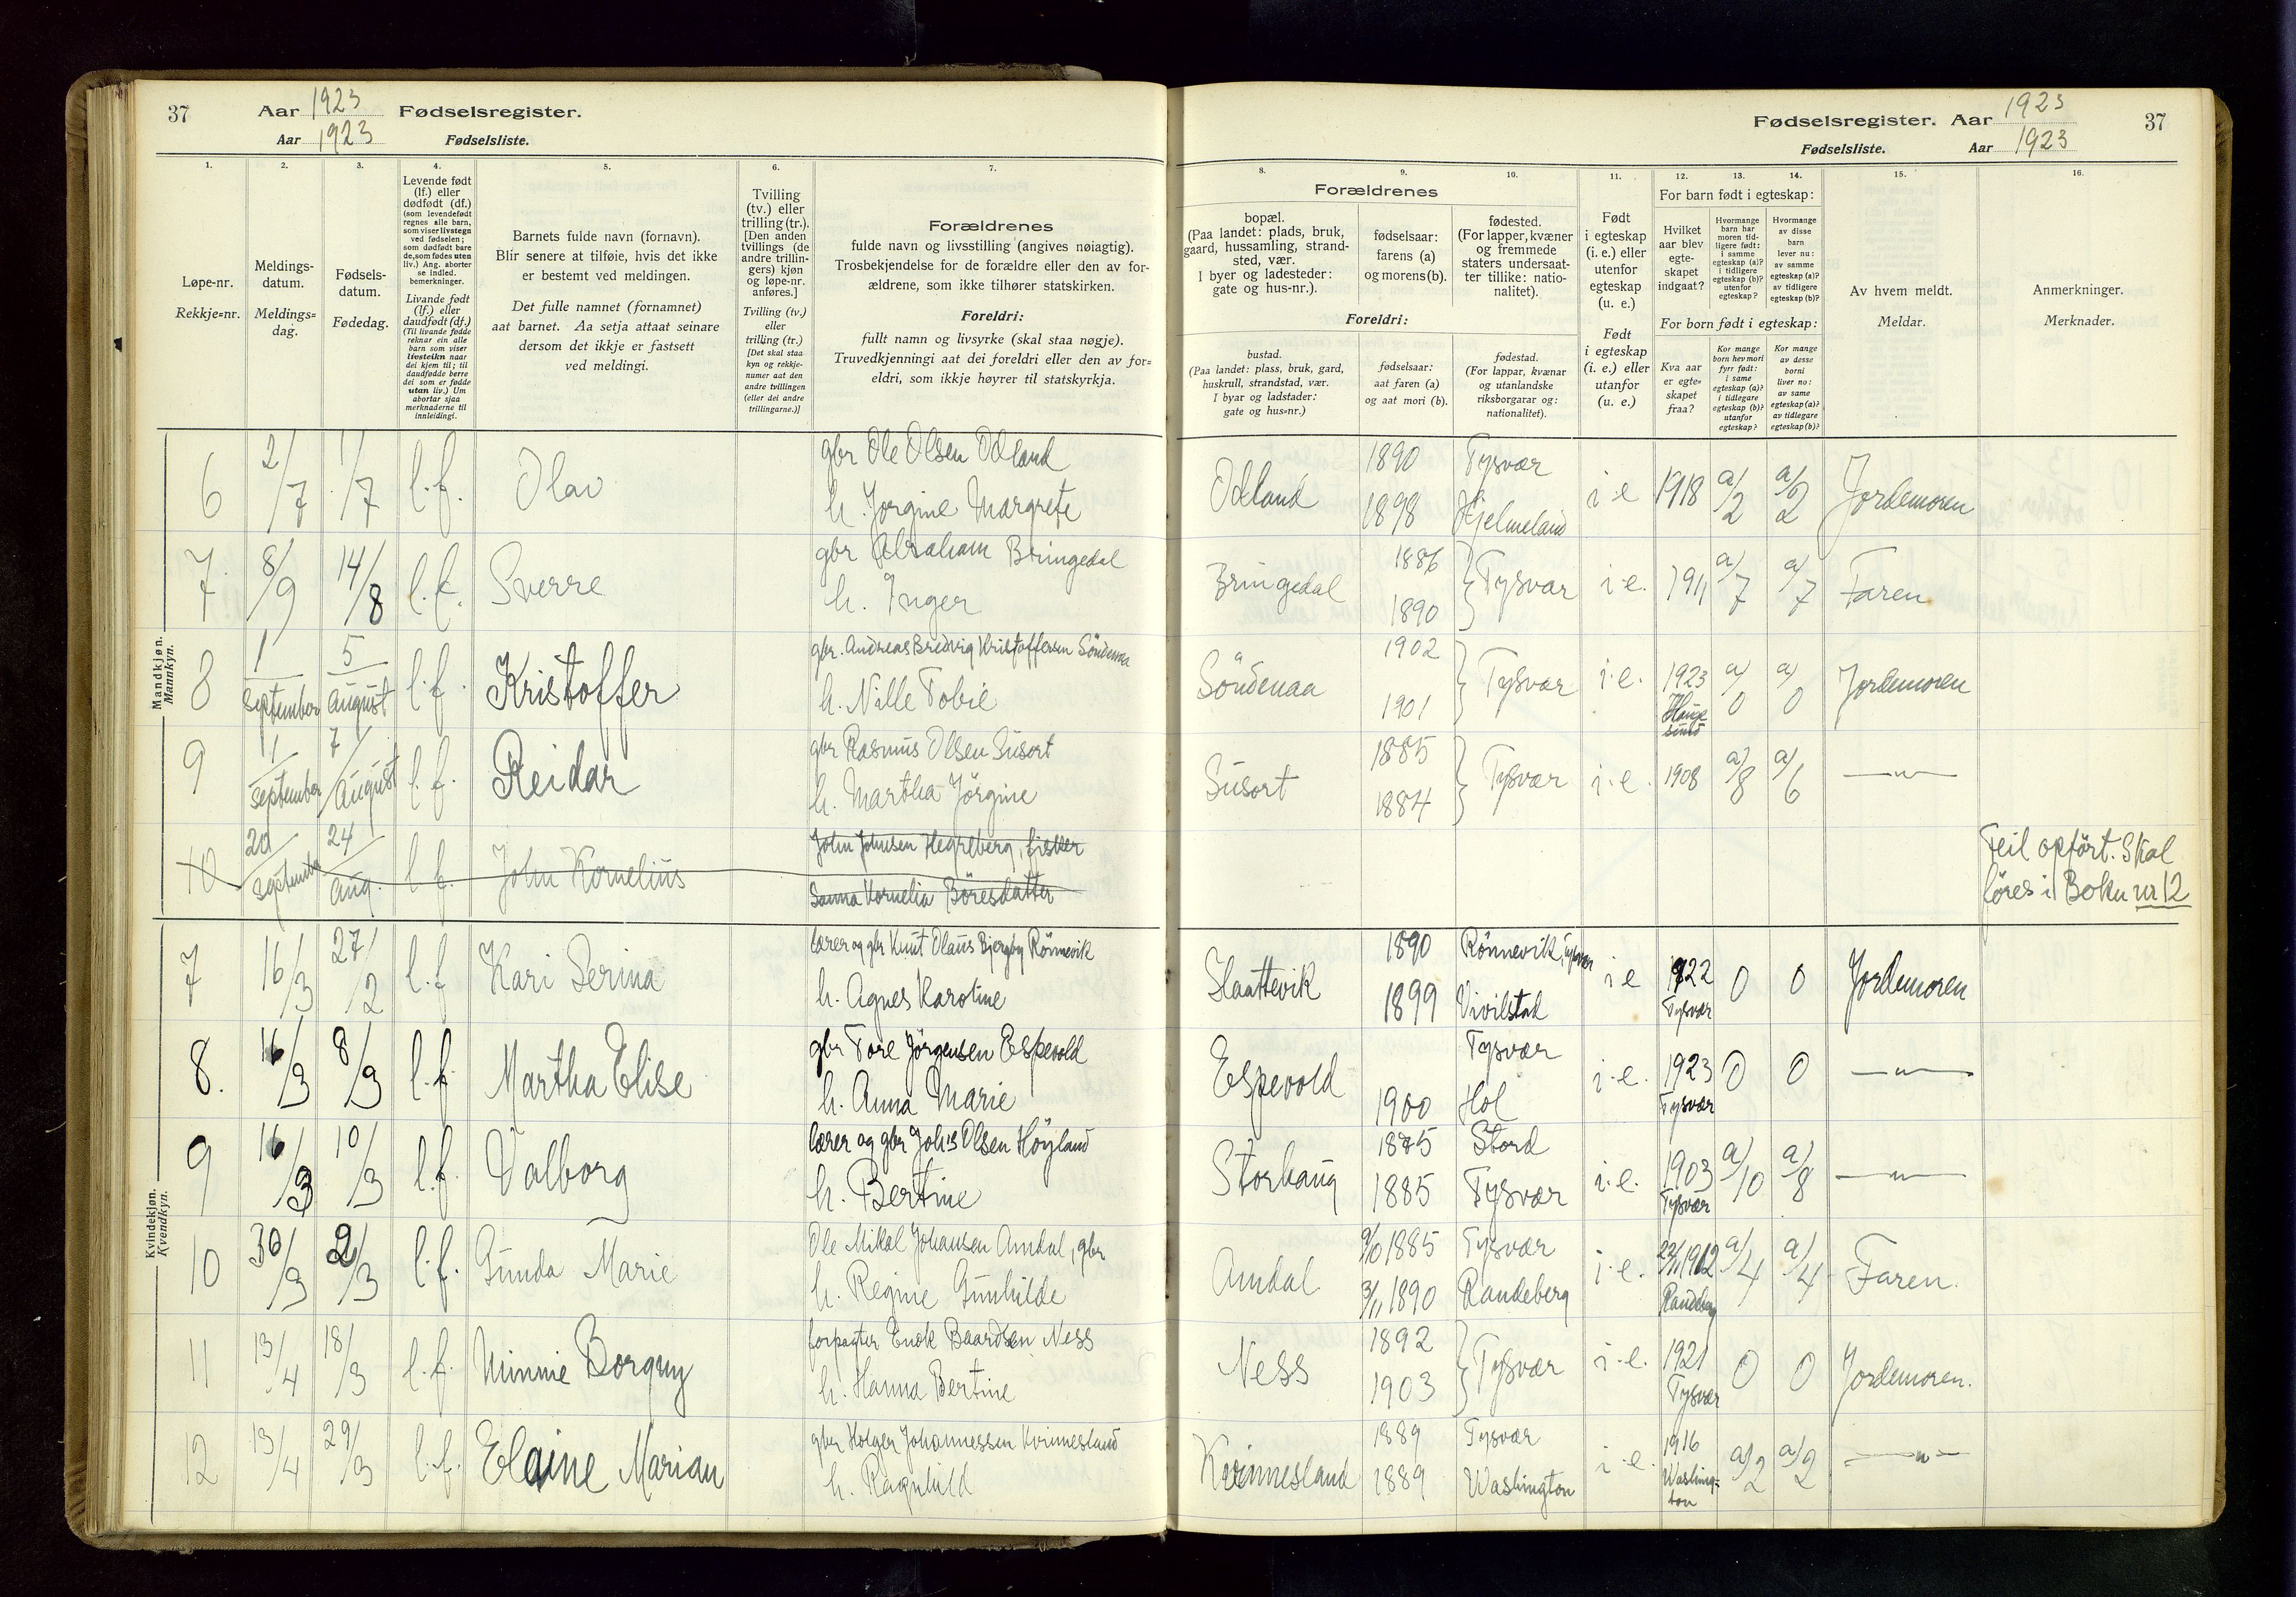 37
Aar 1923 Fødselsregister.
Aar 1923 Fødselsliste.
1.
Løpe-nr.
Rekkje=nr.
2.
Meldings-
datum.
Meldings=
dag.
3.
Fødsels-
datum.
Fødedag.
4.
Levende født
(lf.) eller
dødfødt (df.)
(som levendefødt
regnes alle barn,
som viser livstegn
ved fødselen;
som dødfødt bare
de, som fødes uten
liv.) Ang. aborter
se indled.
bemerkninger.
Livande født
(lf.) eller
daudfødt (df.)
(Til livande fødde
reknar ein alle
barn som viser
livsteikn naar
dei kjem til; til
daudfødde berre
dei som er fødde
utan liv.) Um
abortar sjaa
merknaderne til
innleidingi.
5.
Barnets fulde navn (fornavn).
Blir senere at tilføie, hvis det ikke
er bestemt ved meldingen.
Det fulle namnet (fornamnet)
aat barnet. Aa setja attaat seinare
dersom det ikkje er fastsett
ved meldingi.
6.
Tvilling
(tv.) eller
trilling (tr.).
[Den anden
tvillings (de
andre trillin-
gers) kjøn
og løpe-nr.
anføres.]
Tvilling (tv.)
eller
trilling (tr.)
[Det skal staa
kyn og rekkje-
numer aat den
andre tvillingen
(eller dei andre
trillingarne.)]
7.
Forældrenes
fulde navn og livsstilling (angives nøiagtig).
Trosbekjendelse for de forældre eller den av for-
ældrene, som ikke tilhører statskirken.
Foreldri:
fullt namn og livsyrke (skal staa nøgje).
Truvedkjenningi aat dei foreldri eller den av for=
eldri, som ikkje høyrer til statskyrkja.
Fødselsregister. Aar 1923
Fødselsliste. Aar 1923
37
8.
Forældrenes
bopæl.
(Paa landet: plads, bruk,
gaard, hussamling, strand-
sted, vær.
I byer og ladesteder:
gate og hus-nr.).
Foreldri:
bustad.
(Paa landet: plass, bruk, gard,
huskrull, strandstad, vær.
I byar og ladstader:
gate og hus=nr.)
9.
fødselsaar:
farens (a)
og morens (b).
fødselsaar:
aat faren (a)
og aat mori (b).
10.
fødested.
(For lapper, kvæner
og fremmede
staters undersaat-
ter tillike: natio-
nalitet).
fødestad.
(For lappar, kvænar
og utanlandske
riksborgarar og:
nationalitet).
11.
Født
i egteskap
(i. e.) eller
utenfor
egteskap
(u. e.)
Født
i egteskap
(i. e.) eller
utanfor
(u. e.)
12. 13. 14.
For barn født i egteskap:
Hvilket
aar blev
egte-
skapet
indgaat?
Hvormange
barn har
moren tid-
ligere født:
i samme
egteskap (a)?
i tidligere
egteskap (b)?
utenfor
egteskap?
Hvormange
av disse
barn
lever nu:
av samme
egteskap (a)?
av tidligere
egteskap (b)?
For born født i egteskap:
Kva aar
er egte=
skapet
fraa?
Kor mange
born hev mori
fyrr født:
i same
egteskap (a)?
i tidlegare
egteskap (b)?
utanfor
egteskap?
Kor mange
av desse
borni
liver no:
av same
egteskap (a)?
av tidlegare
egteskap (b)?
15.
Av hvem meldt.
Meldar.
16.
Anmerkninger.
Merknader.
Mandkjøn.
Mannkyn.
6 2/7 1/7 l.f. Olav gbr Ole Olsen Odland Odland 1890 Tysvær i e 1918 a/2 a/2 Jordemoren
h. Jorgine Margrete 1898 Hjelmeland
7. 8/9 14/8 l.f. Sverre gbr Abraham Bringedal Bringedal 1886 Tysvær i e. 1911 a/7 a/7 Faren
h. Inger 1890
8 1 september 5 august l.f. Kristoffer gbr. Andreas Bredvig Kristoffersen Söndenaa Söndenaa 1902 Tysvær i.e. 1923 Haugesund a/0 a/0 Jordemoren
h. Nille Tobie 1901
9 1/ september 7/ August l.f. Reidar gbr Rasmus Olsen Susort Susort 1885 Tysvær i.e. 1908 a/8 a/6 —"—
h. Martha Jörgine 1884
10 20 september 24 aug. l.f. John Kornelius John Johnsen Hegreberg, fisker Feil opfört. Skal
Sanna Kornelia Böresdatter föres i Boku nr 12
Kvindekjøn.
Kvendkyn.
7 16/3 27/2 l.f Kari Serina lærer og gbr Knut Olaus Bjergby Rönnevik Slaattevik 1890 Rönnevik, Tysvær i e 1922 Tysvær 0 0 Jordemoren
h. Agnes Karoline 1899 Vivilstad
8. 16/3 8/3 l.f. Martha Elise gbr Tore Jörgensen Espevold Espevold Tysvær i.e. 1923 Tysvær 0 0 —"—
h. Anna Marie 1900 Hol
9 16/3 10/3 l.f. Valborg lærer og gbr Johs Olsen Höyland Storhaug 1875 Stord i.e. 1903 Tysvær a/10 a/8 —"—
h. Bertine 1885 Tysvær
10 30/3 2/3 l.f. Gunda Marie Ole Mikal Johansen Amdal, gbr Amdal 9/10 1885 Tysvær i.e. 22/11 1912 Randeberg a/4 a/4 Faren.
h. Regine Gunhilde 3/11 1890 Randeberg
11 13/4 18/3 l.f. Minnie Borgny forpagter Enok Baardsen Ness Ness 1892 Tysvær i.e. 1921 Tysvær 0 0 Jordemoren.
h. Hanna Bertine 1903
12 13/4 29/3 l.f. Elaine Marian gbr Holger Johannessen Kvinnesland Kvinnesland 1889 Tysvær i e. 1916 Washington a/2 a/2 —"—
h. Ragnhild 1889 Washington